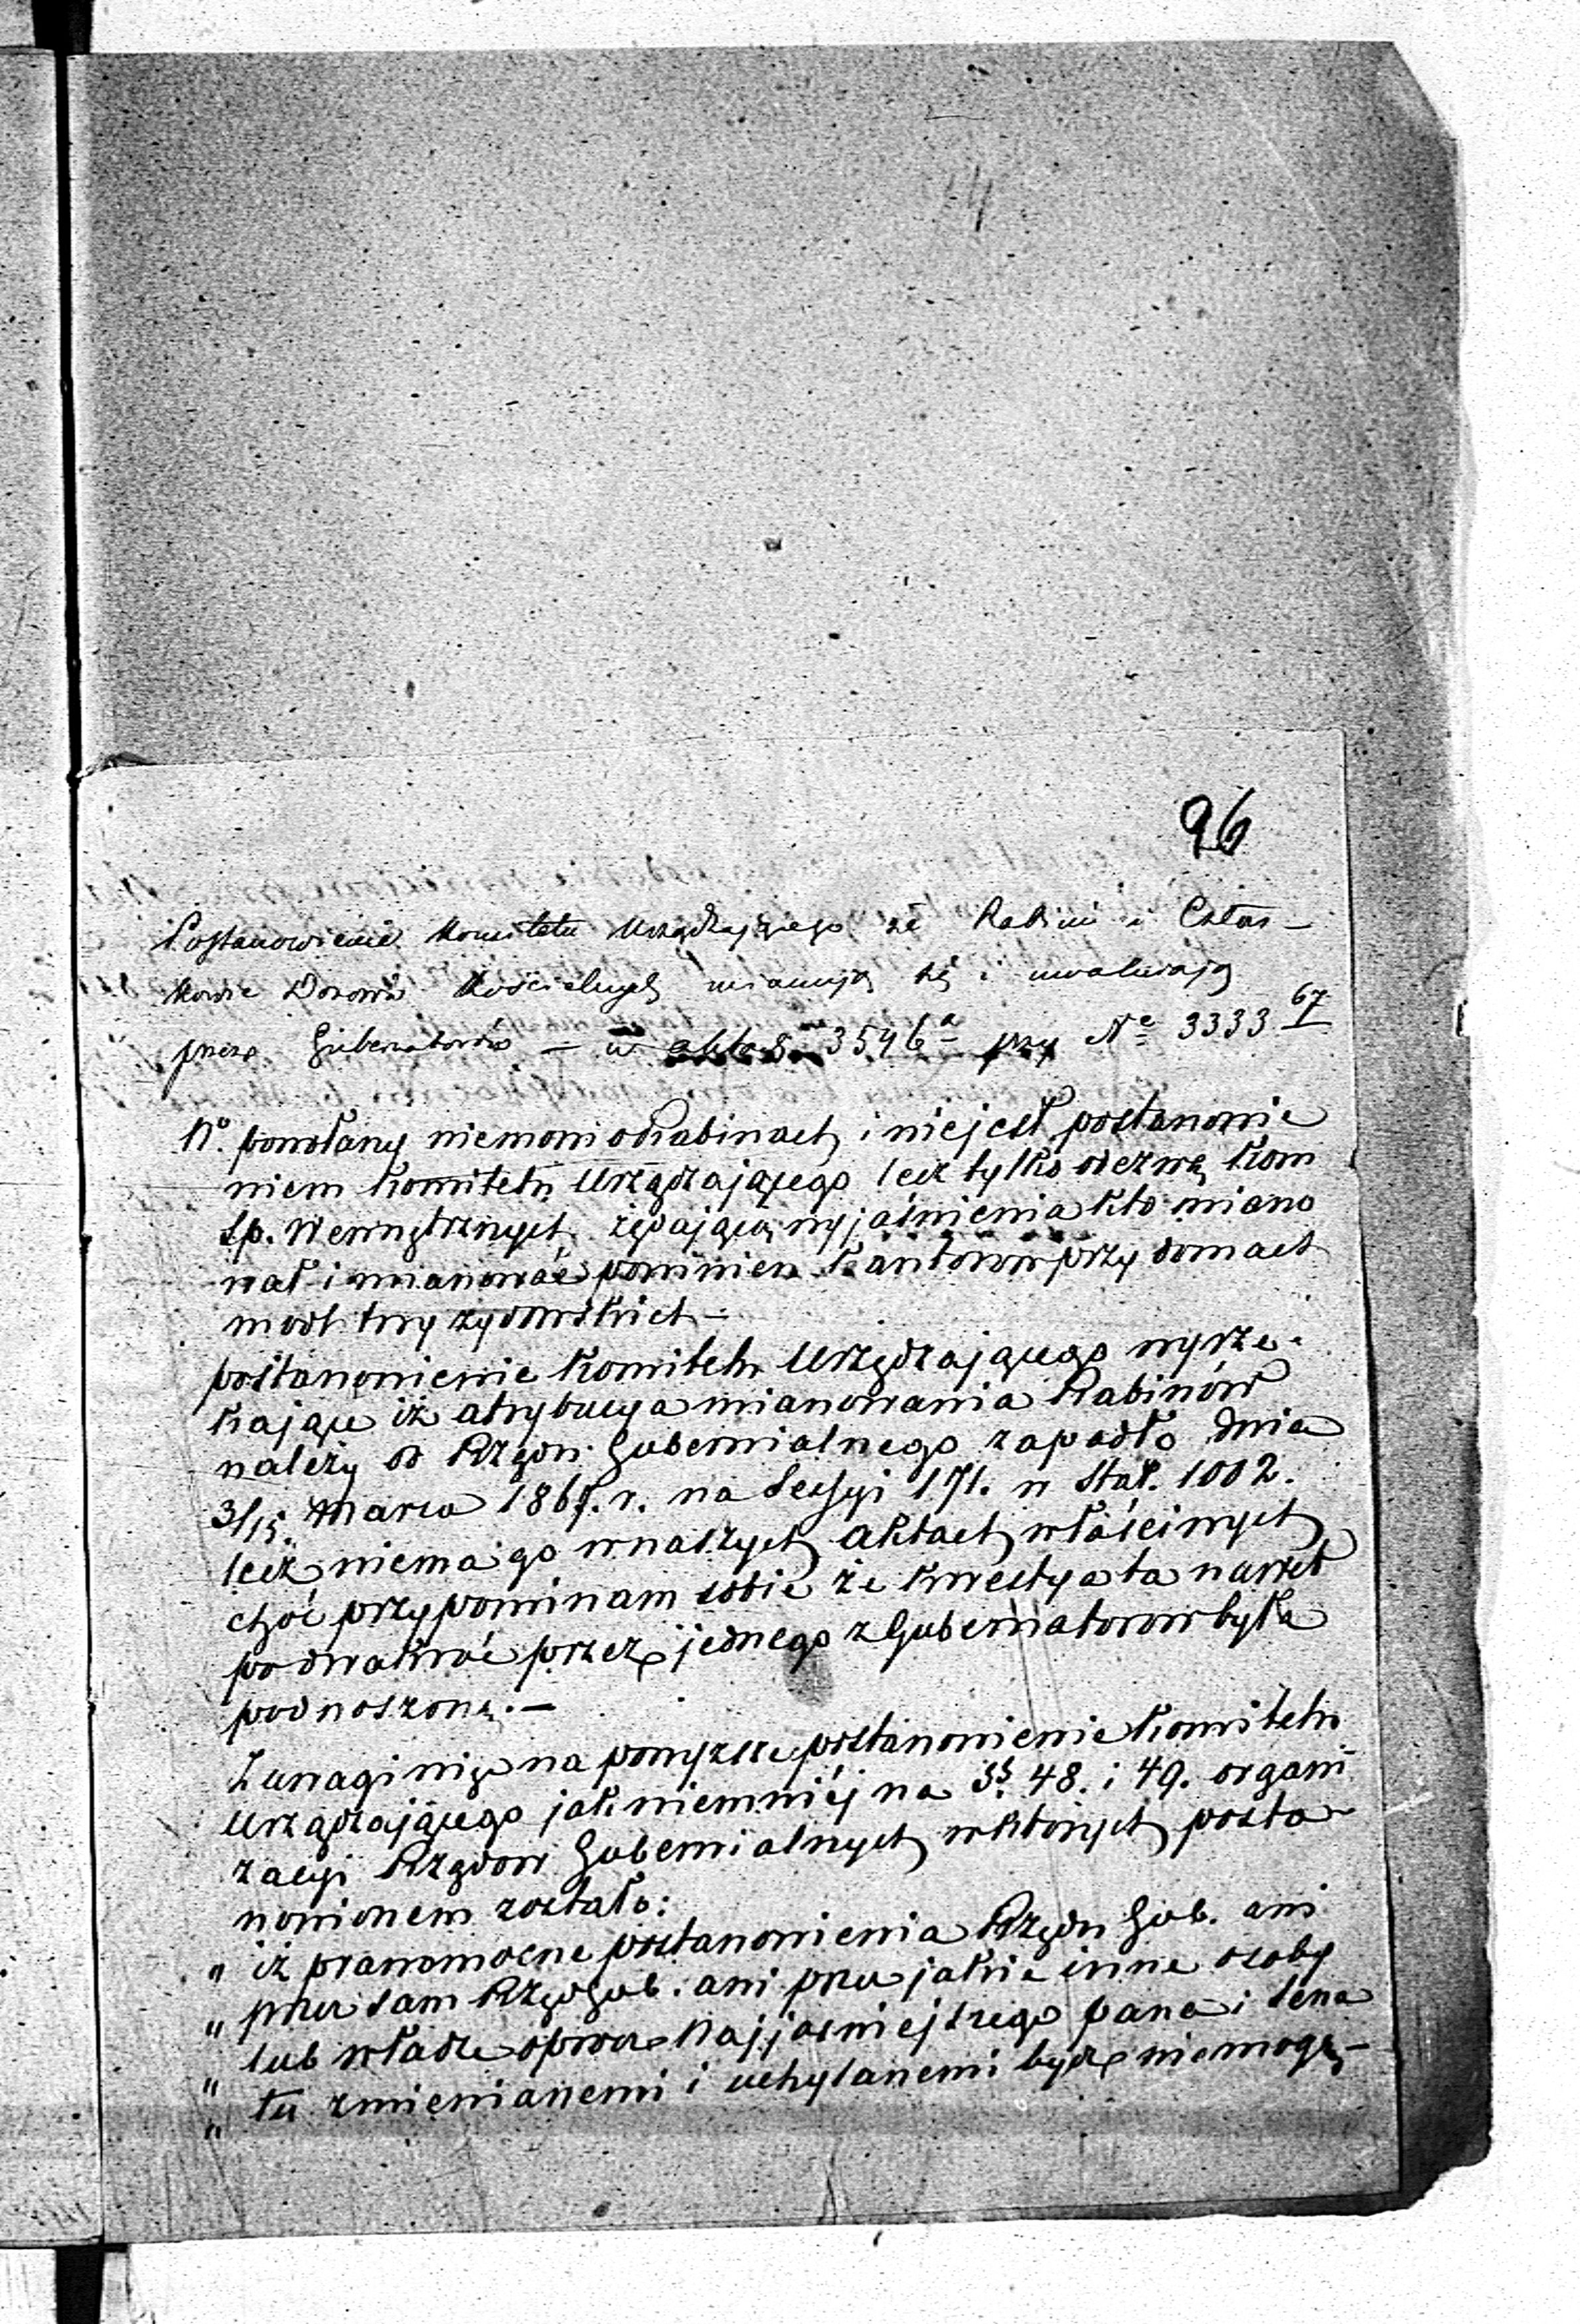 96
Postanowienie Komitetu Urządzającego że Rabini i Człon-
kowie Dozorów Kościelnych mianują się i uwalniają
przez Gubernatorów — w aktach 3546a przy № 3333 67/I
No. powołany niemowi o Rabinach i niejest postanowie
niem Komitetu Urządzającego lecz tylko odezwą Kom
Sp. Wewnętrznych żądającą wyjaśnienia kto miano
wał i mianować powinien Kantorów przy domach
modlitwy żydowskich —
postanowienie Komitetu Urządzającego wyrze-
kające iż atrybucya mianowania Rabinów
należy od Rządu Gubernialnego zapadło dnia
3/15. Marca 1867. r. na Sessyi 171. w Stat. 1002.
lecz niema go w naszych aktach właściwych
choć przypominam sobie że kwestya ta nawet
podwakroć przez jednego z Gubernatorów była
podnoszoną. —
Z uwagi więc na powyższe postanowienie Komitetu
Urządzającego jak niemniej na §§ 48. i 49. organi
zacyi Rządów Gubernialnych w których posta-
nowionem zostało:
„ iż prawomocne postanowienia Rządu Gub. ani
„ przez sam Rząd Gub. ani przez jakie inne osoby
„ lub władze oprócz Najjaśniejszego Pana i Sena
„ tu zmienianemi i uchylanemi być nie mogą, —